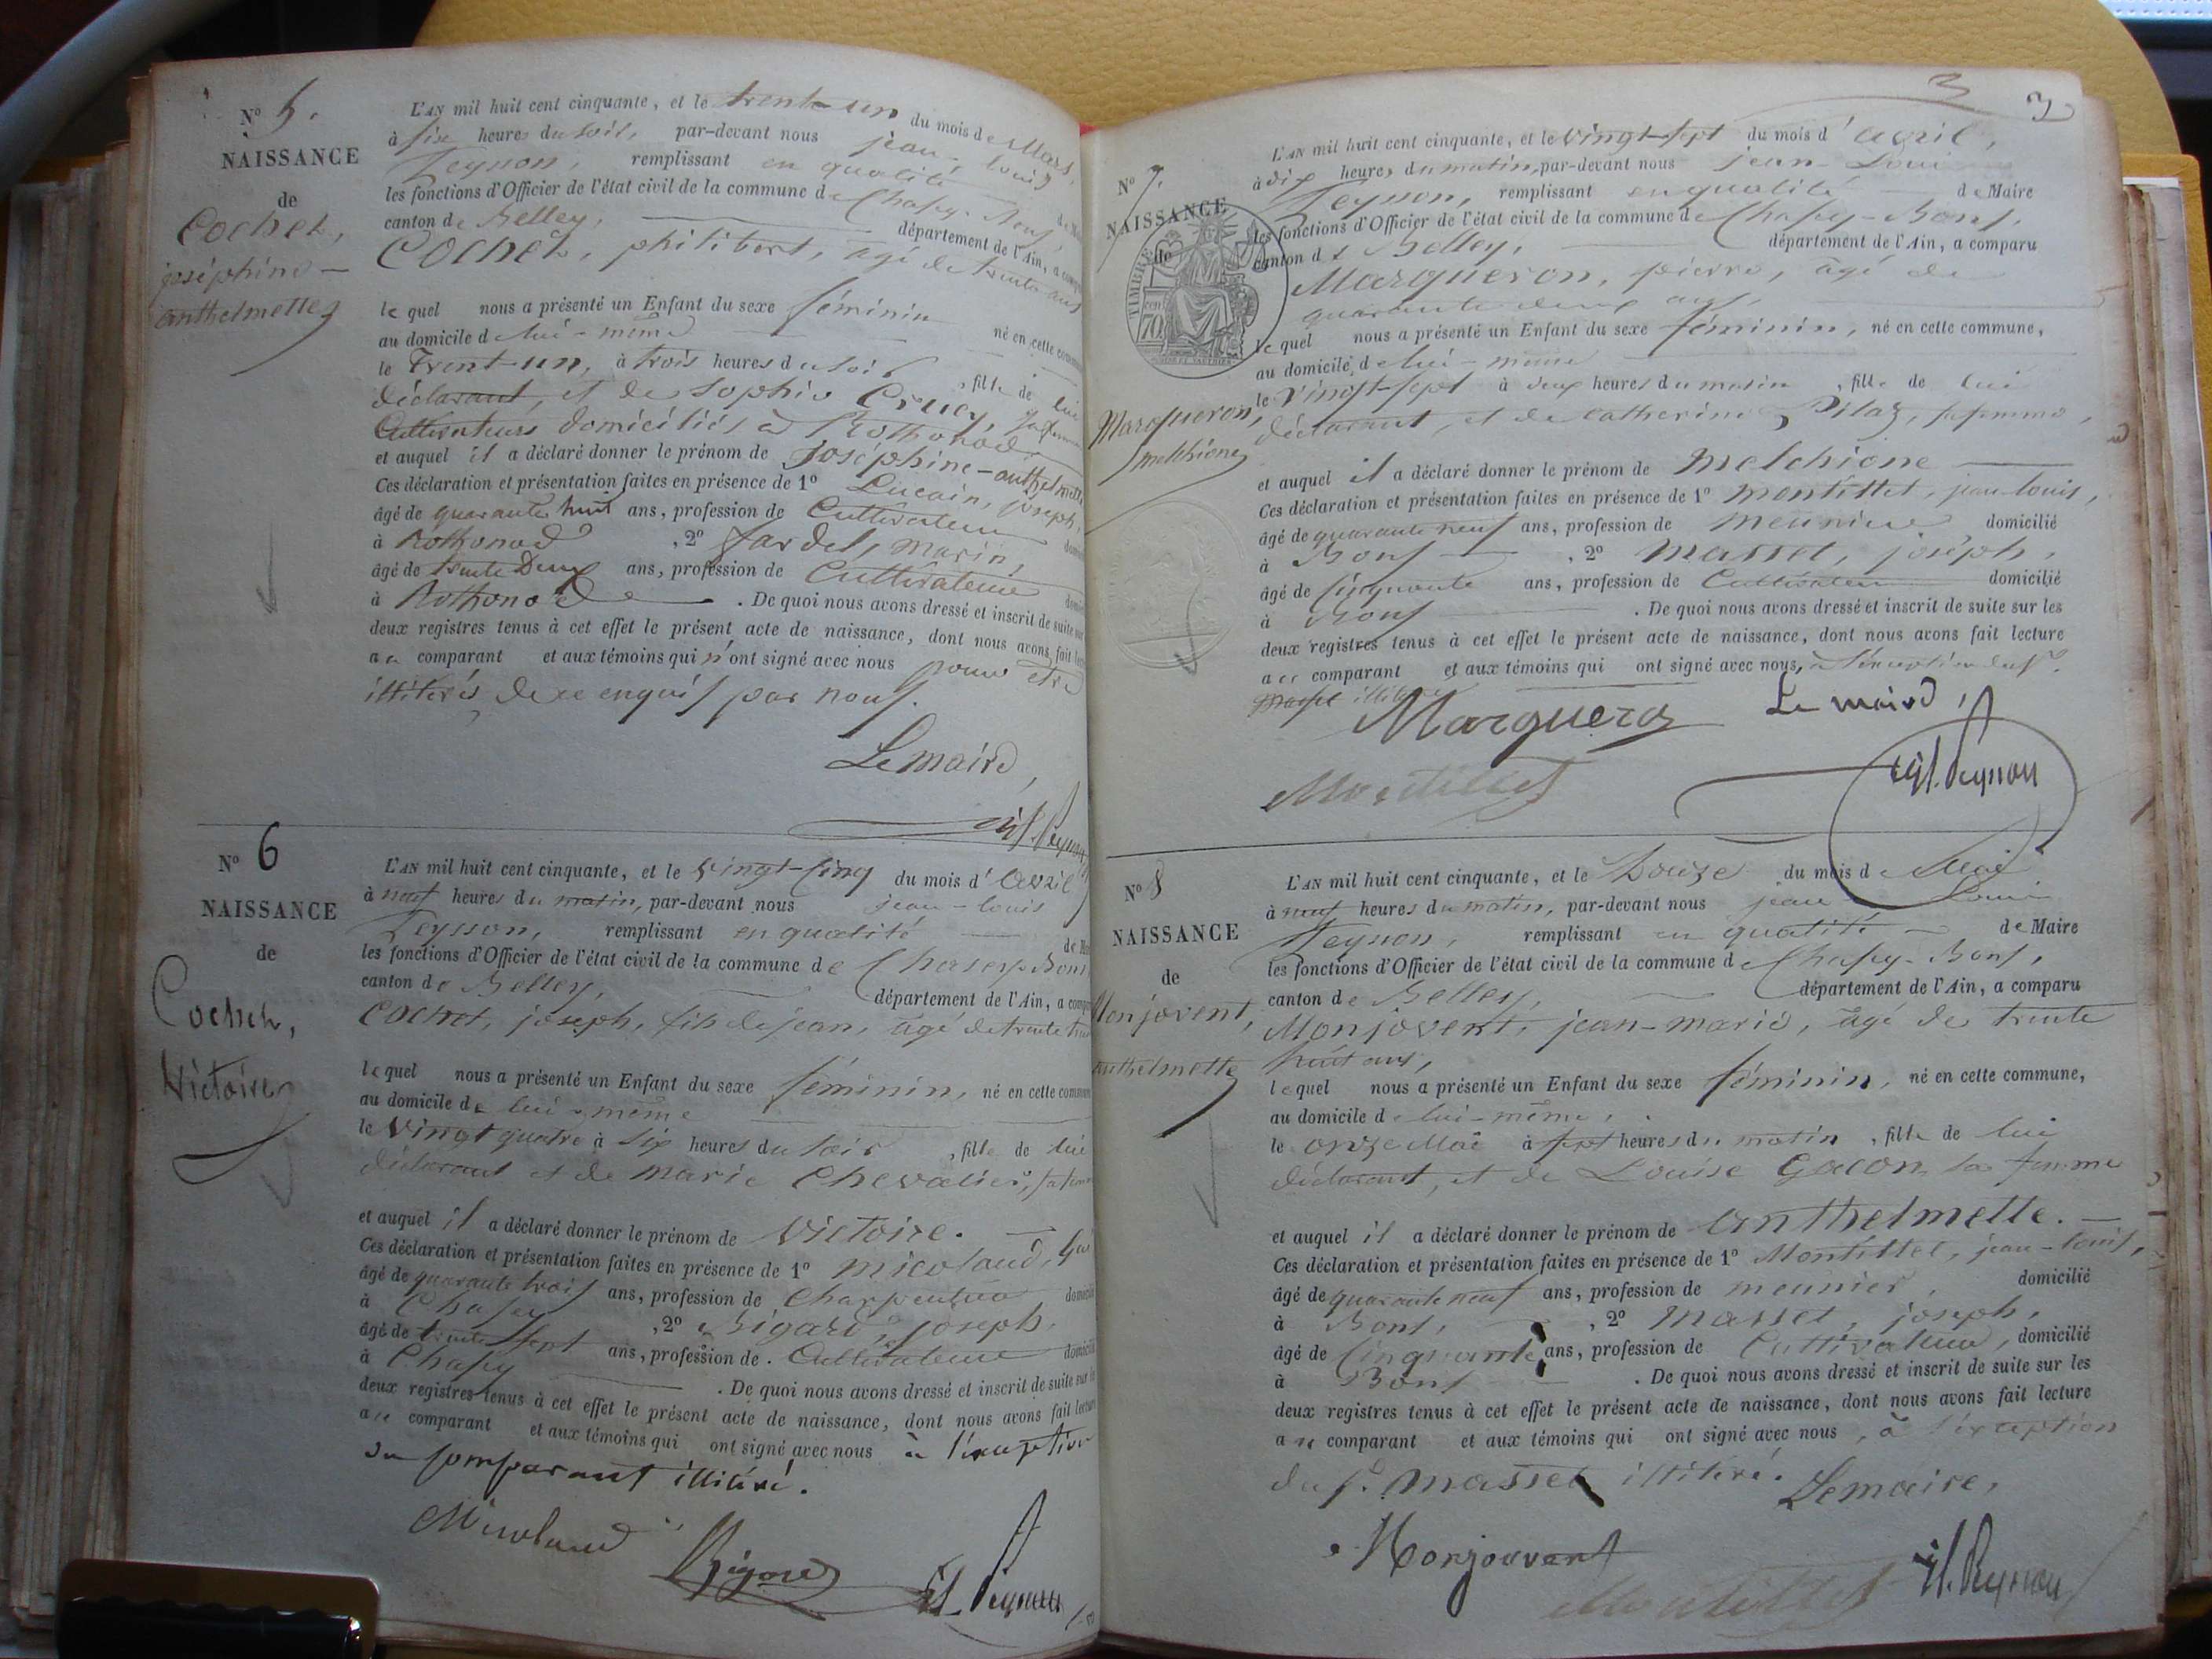 N° 5.
NAISSANCE
de
Cochet,
joséphine-
anthelmette
L'AN mil huit cent cinquante, et le trente un du mois de Mars,
à six heures du soir, par-devant nous jean-louis
Peysson, remplissant en qualité
les fonctions d'Officier de l'état civil de la commune de Chazey-Bons,
canton de Belley, département de l'Ain, a
Cochet, philibert, âgé de trente ans
le quel nous a présenté un Enfant du sexe féminin né en cette
au domicile de lui-même
le Trent-un, à trois heures du soir, fille de lui
déclarant, et de Sophie Crucy, sa
Cultivateurs domiciliés à Rothonod
et auquel il a déclaré donner le prénom de Joséphine-anthelmette
Ces déclaration et présentation faites en présence de 1° Lucain, joseph,
âgé de quarante huit ans, profession de Cultivateur
à Rothonod, 2° Jardel, marin,
âgé de trente Deux ans, profession de Cultivateur
à Rothonod. De quoi nous avons dressé et inscrit de suite
deux registres tenus à cet effet le présent acte de naissance, dont nous avons fait
au comparant et aux témoins qui n'ont signé avec nous pour être
illitérés de ce enquis par nous.
Le maire,
N° 6
NAISSANCE
de
Cochet,
Victoire
L'AN mil huit cent cinquante, et le vingt-cinq du mois d'avril
à neuf heures du matin, par-devant nous jean-louis
Peysson, remplissant en qualité
les fonctions d'Officier de l'état civil de la commune de Chazey-Bons
canton de Belley, département de l'Ain, a
Cochet, joseph, fils de jean, âgé de trente
le quel nous a présenté un Enfant du sexe féminin, né en cette
au domicile de lui-même
le vingt quatre à six heures du soir, fille de lui
déclarant et de marie Chevalier,
et auquel il a déclaré donner le prénom de Victoire.
Ces déclaration et présentation faites en présence de 1° Micoland,
âgé de quarante trois ans, profession de Charpentier
à Chazey, 2° Bigard, joseph,
âgé de trente sept ans, profession de. Cultivateur
à Chazey. De quoi nous avons dressé et inscrit de suite
deux registres tenus à cet effet le présent acte de naissance, dont nous avons fait
au comparant et aux témoins qui ont signé avec nous à l'exeption
du comparant illitéré.
Micoland
Bigard
3
3
N° 7.
NAISSANCE
de
TIMBRE
70
Marqueron,
melchione
L'AN mil huit cent cinquante, et le vingt-sept du mois d'avril,
à dix heures du matin, par-devant nous jean-Loui
Peysson, remplissant en qualité de Maire
les fonctions d'Officier de l'état civil de la commune de Chazey-Bons,
canton de Belley, département de l'Ain, a comparu
Marqueron, pierre, âgé de
quarante deux ans,
le quel nous a présenté un Enfant du sexe féminin, né en cette commune,
au domicile de lui-même
le vingt-sept à deux heures du matin, fille de lui
déclarant, et de catherine Pilaz, sa femme,
et auquel il a déclaré donner le prénom de Melchione
Ces déclaration et présentation faites en présence de 1° montillet, jean louis,
âgé de quarante neuf ans, profession de meunier domicilié
à Bons, 2° Masset, joseph,
âgé de cinquante ans, profession de Cultivateur domicilié
à Bons. De quoi nous avons dressé et inscrit de suite sur les
deux registres tenus à cet effet le présent acte de naissance, dont nous avons fait lecture
au comparant et aux témoins qui ont signé avec nous, à l'exception du Sr.
Masset
Le maire,
Montillet
N° 8
NAISSANCE
de
Monjovent,
anthelmette
L'AN mil huit cent cinquante, et le Douze du mois de Mai
à neuf heures du matin, par-devant nous jean Loui
Peysson, remplissant en qualité de Maire
les fonctions d'Officier de l'état civil de la commune de Chazey-Bons,
canton de Belley, département de l'Ain, a comparu
Monjovent, jean-marie, âgé de trente
huit ans,
le quel nous a présenté un Enfant du sexe féminin, né en cette commune,
au domicile de lui-même,
le onze Mai à sept heures du matin, fille de lui
déclarant, et de Louise Gacon sa femme
et auquel il a déclaré donner le prénom de Anthelmette.
Ces déclaration et présentation faites en présence de 1° Montillet, jean-louis,
âgé de quarante neuf ans, profession de meunier, domicilié
à Bons, 2° Masset, joseph,
âgé de Cinquante, ans, profession de Cultivateur, domicilié
à Bons. De quoi nous avons dressé et inscrit de suite sur les
deux registres tenus à cet effet le présent acte de naissance, dont nous avons fait lecture
au comparant et aux témoins qui ont signé avec nous, à l'exception
du Sr. Masset illitéré. Le maire,
Monjovent
Montillet